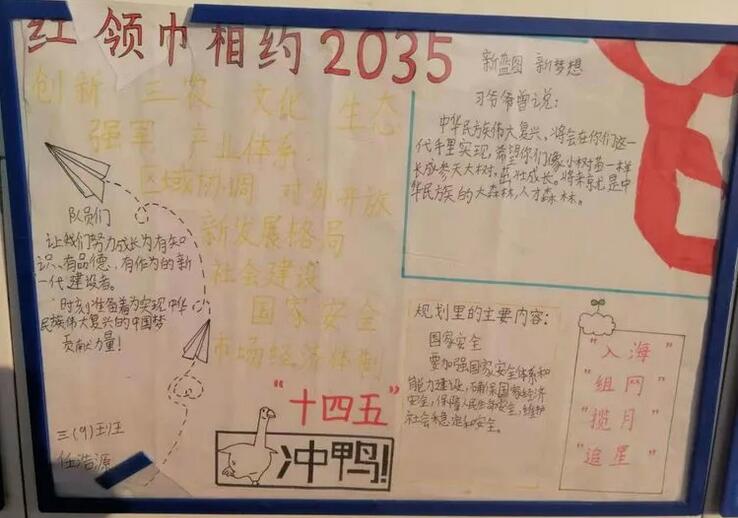 红领巾相约2035
创新 三农 文化 生态
强军 产业体系
区域协调 对外开放
新发展格局
社会建设
国家安全
市场经济体制
队员们
让我们努力成长为有知
识、有品德、有作为的新
一代建设者。
时刻准备着为实现中华
民族伟大复兴的中国梦
贡献力量!
三(9)班
任浩源
"十四五"
冲鸭!
新蓝图 新梦想
习爷爷曾说:
中华民族伟大复兴、将会在你们这一
代手里实现,希望你们像小树苗一样
长成参天大树,茁壮成长。将来就是中
华民族的大森林,人才森林。
规划里的主要内容:
国家安全
要加强国家安全体系和
能力建设,确保国家经济
安全,保障人民生命安全,维护
社会稳定和安全。
"入海"
"组网"
"揽月"
"追星"